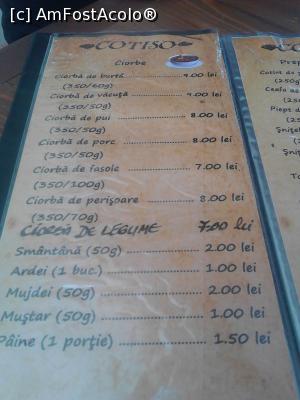 (c) AmFostAcolo®
COTISO
Ciorbe
Ciorbă de burtă ........ 9.00 lei
(350/60g)
Ciorbă de văcuță ........ 9.00 lei
(350/50g)
Ciorbă de pui ........ 8.00 lei
(350/50g)
Ciorbă de porc ........ 8.00 lei
(350/50g)
Ciorbă de fasole ........ 7.00 lei
(350/100g)
Ciorbă de perișoare ........ 8.00 lei
(350/70g)
CIORBĂ DE LEGUME 7.00 lei
Smântână (50g) ........ 2.00 lei
Ardei (1 buc.) ........ 1.00 lei
Mujdei (50g) ........ 2.00 lei
Muștar (50g) ........ 1.00 lei
Pâine (1 porție) ........ 1.50 lei